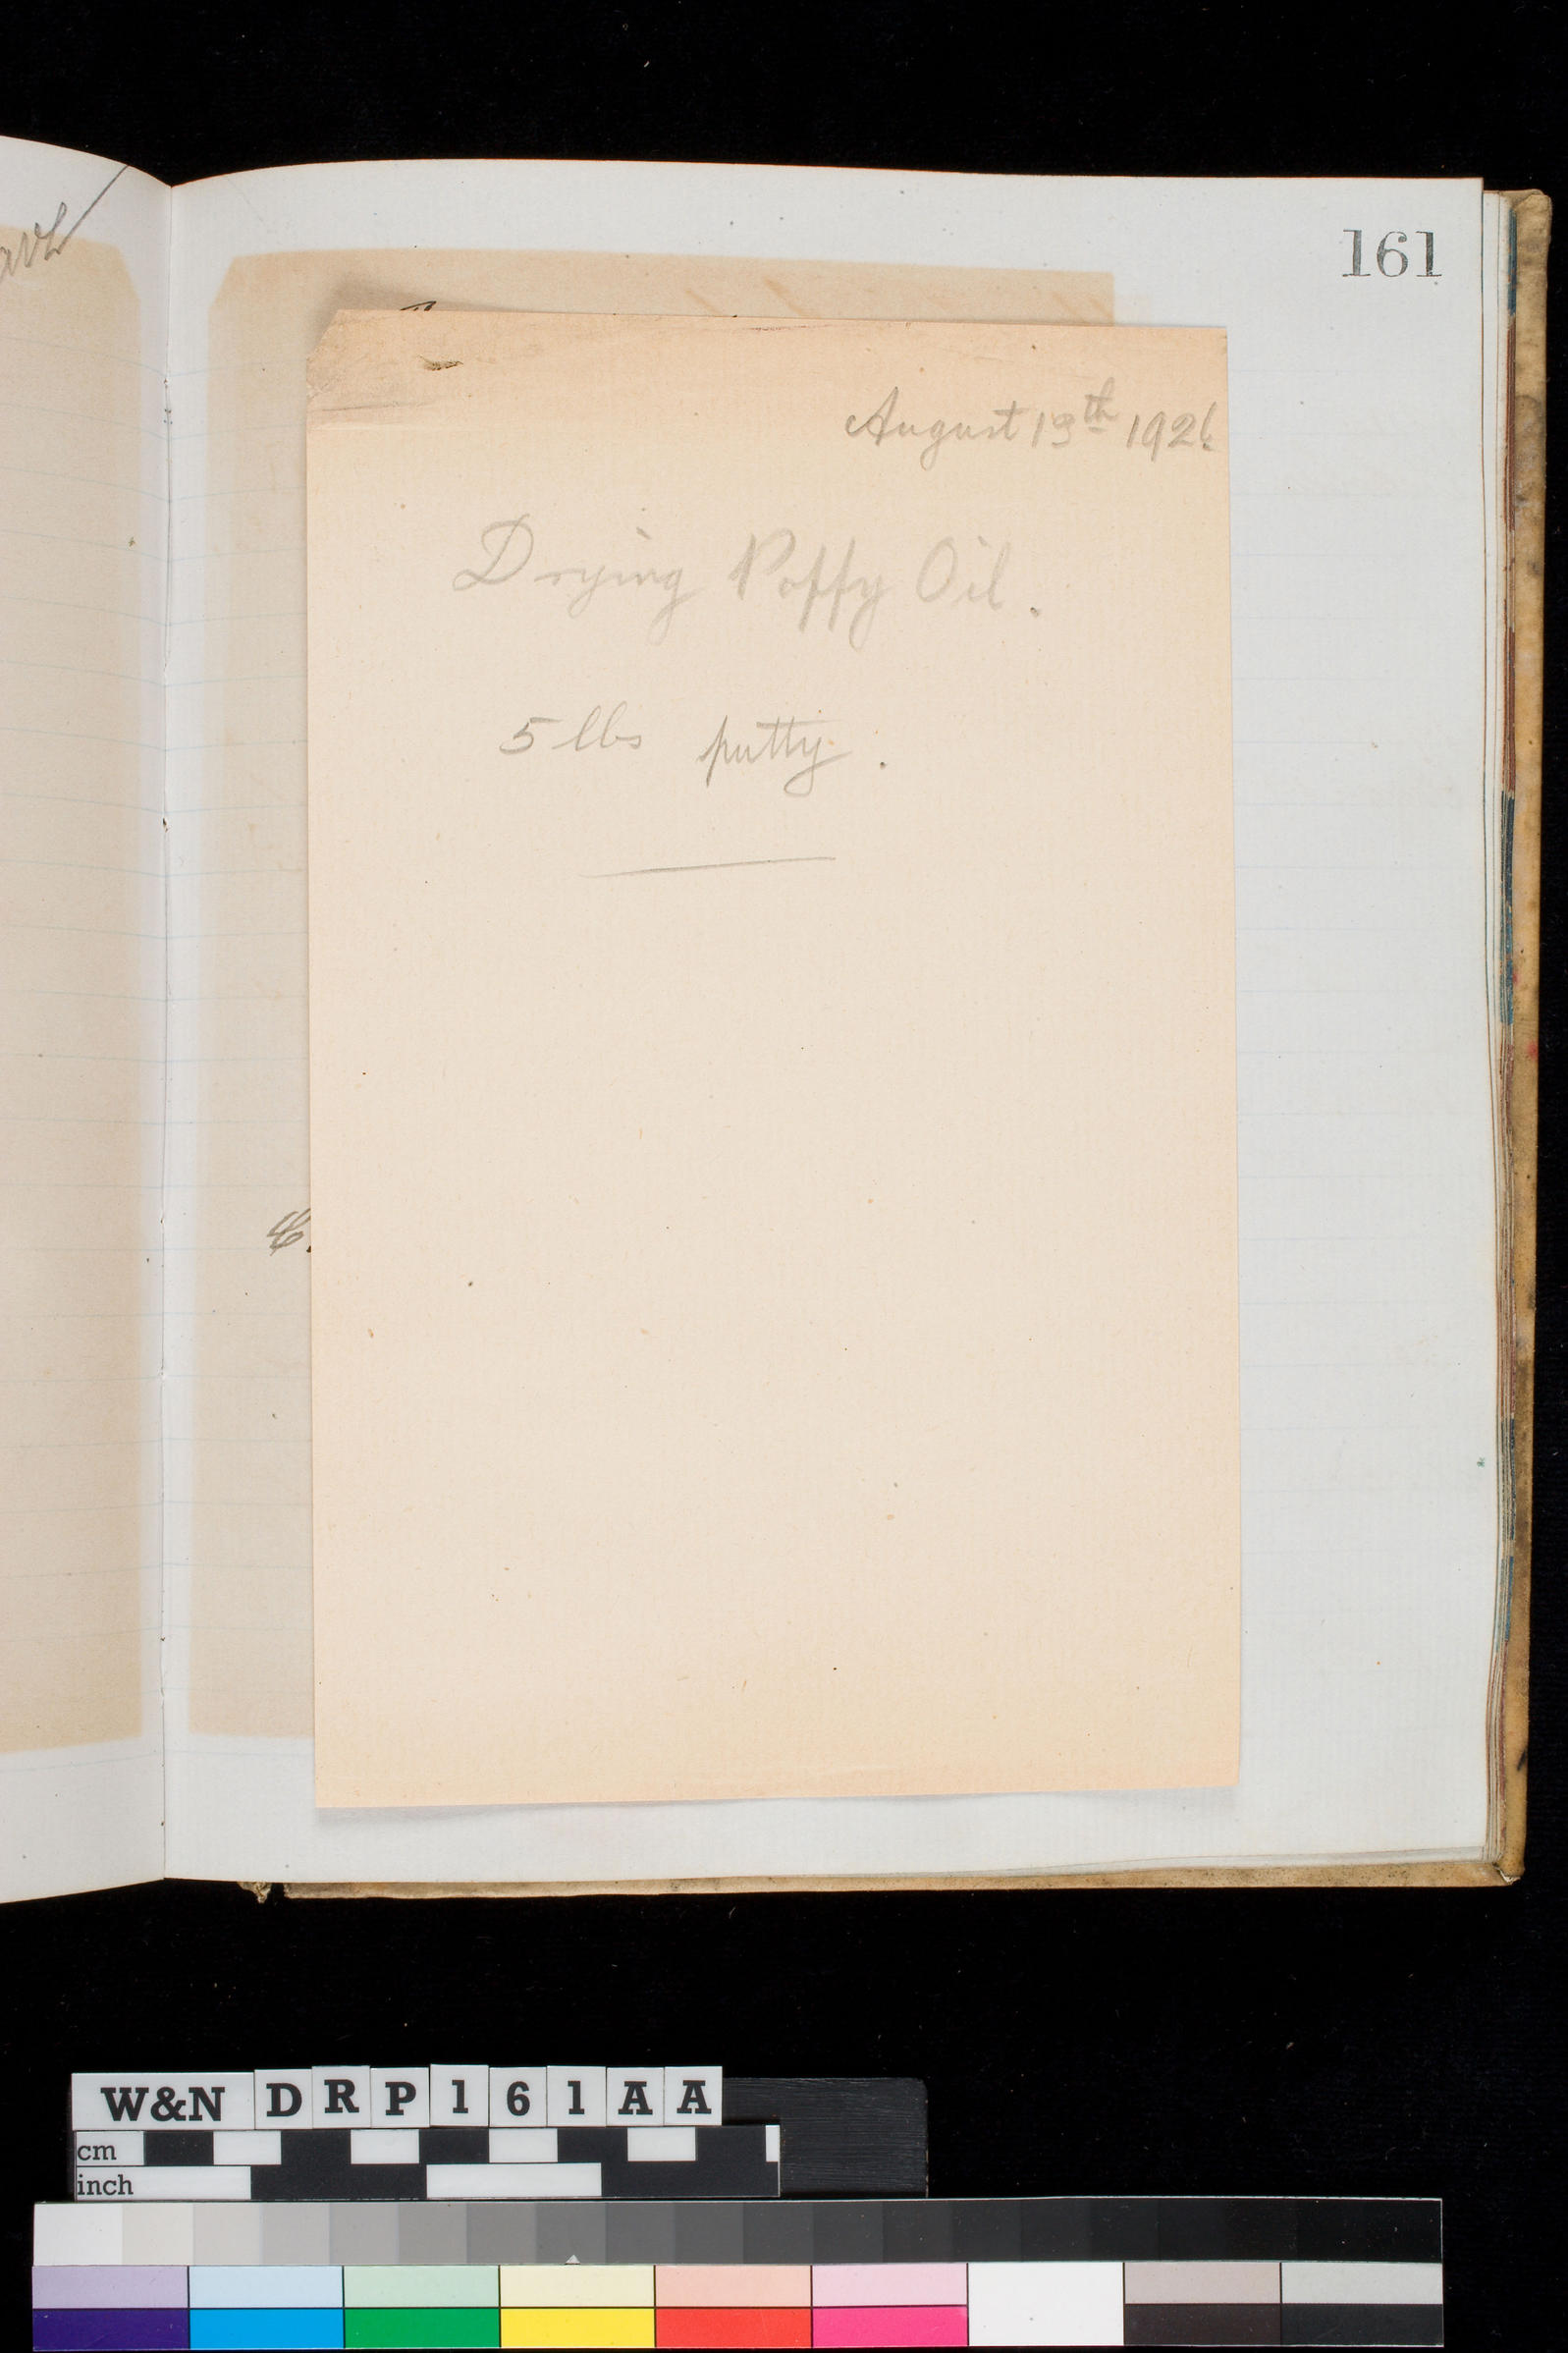 161
August 13th 1926
Drying Poppy Oil.
5 lbs putty.
W&N DRP161AA
cm
inch